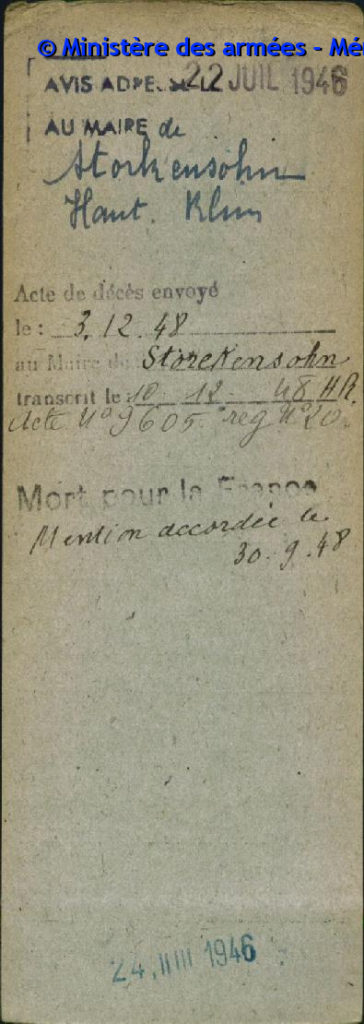 © Ministère des armées - Mé
AVIS ADRESSÉ LE 22 JUIL 1946
AU MAIRE de
Storkensohn
Haut. Rhin
Acte de décès envoyé
le : 3.12.48
au Maire de Storckensohn
transcrit le : 10 - 12 - 48 HR.
Acte N° 9605 reg N° 20.
Mort pour la France
Mention accordée le
30.9.48
24 JUIL 1946